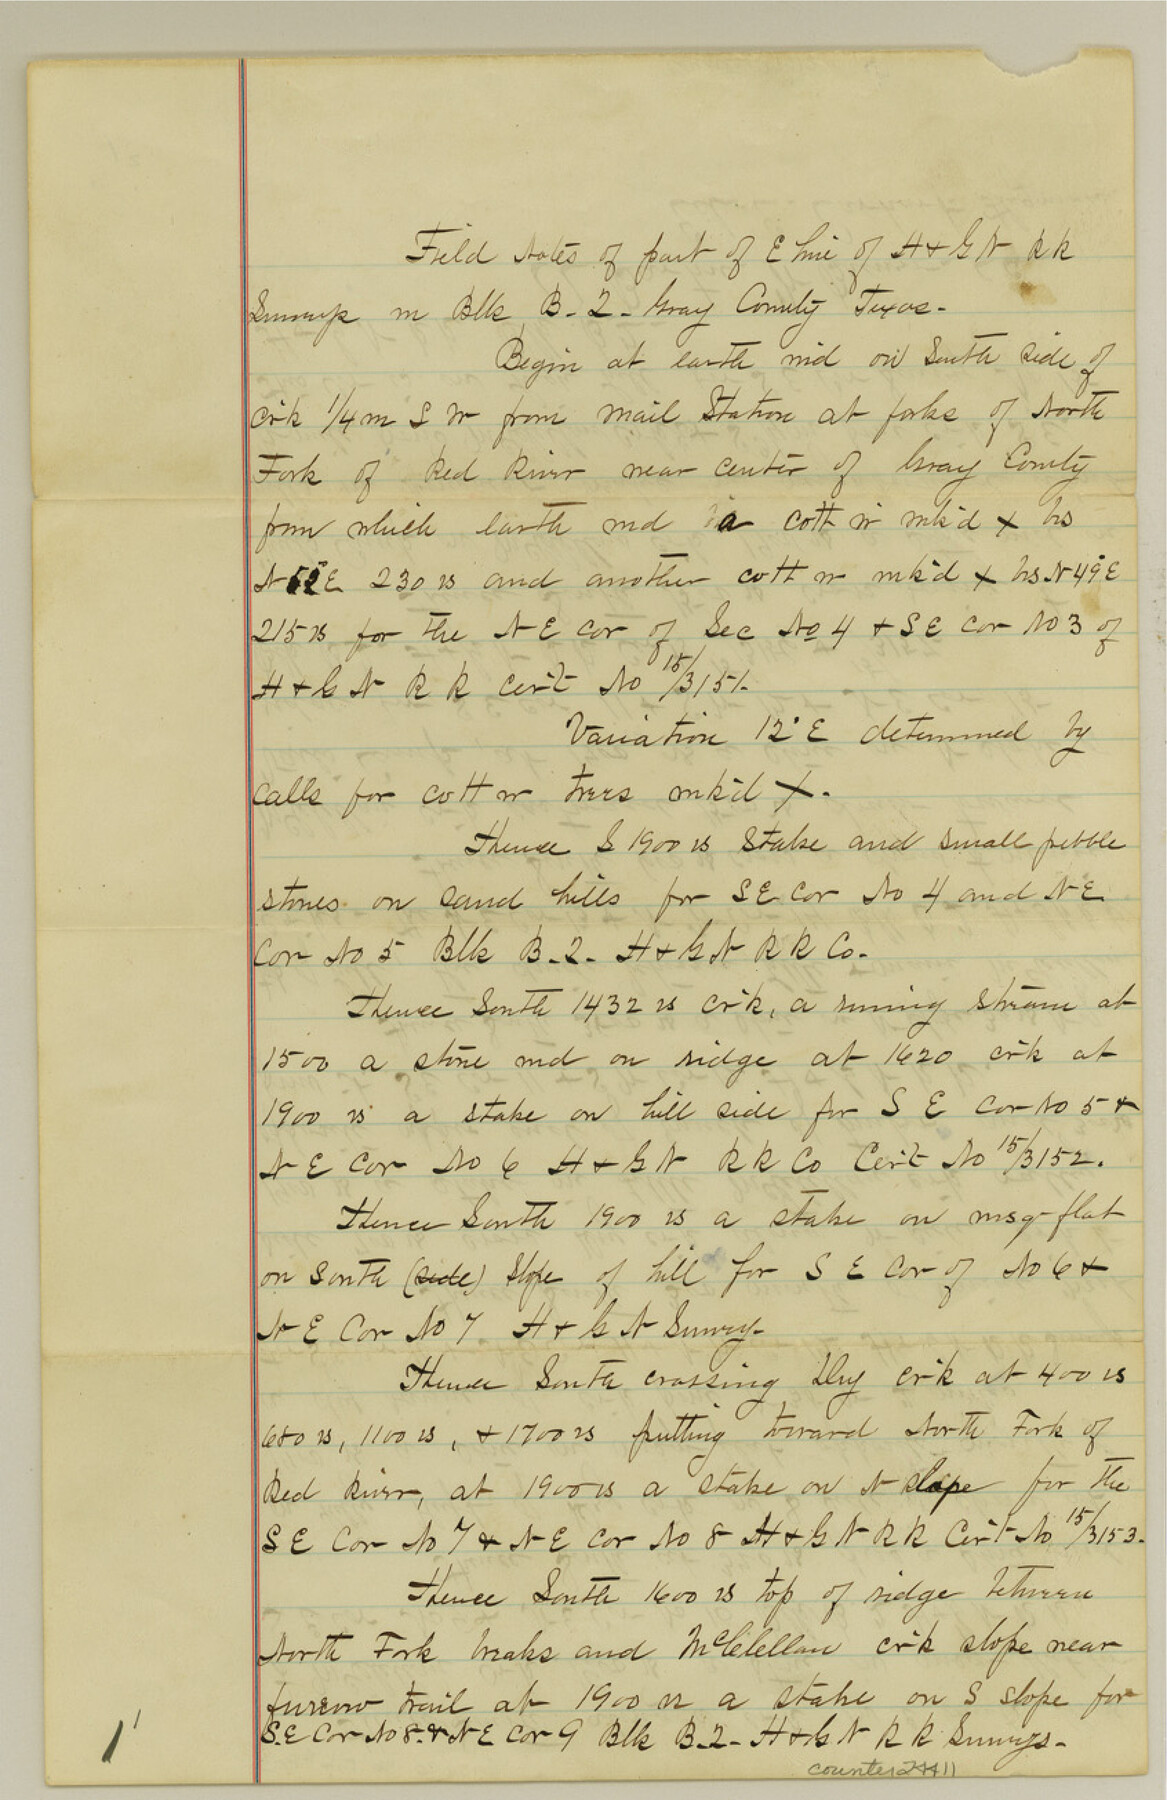 Field Notes of part of E line of H & G N R R
Surveys in Blk B-2- Gray County Texas-
Begin at earth md on South side of
crk 1/4 m S W from mail Station at forks of North
Fork of Red River near center of Gray County
from which earth md a cott w mk'd X brs
N 52° E 230 vs and another cott w mk'd X brs N 49° E
215 vs for the N E cor of Sec No 4 & S E cor No 3 of
H & G N R R Cert No 15/3151.
Variation 12° E determined by
calls for cott w trees mk'd X.
Thence S 1900 vs Stake and small pebble
stones on sand hills for S E Cor No 4 and N E
Cor No 5 Blk B-2- H & G N R R Co-
Thence South 1432 vs crk, a runing stream at
1500 a stone md on ridge at 1620 crk at
1900 vs a stake on hill side for S E Cor No 5 &
N E Cor No 6 H & G N R R Co Cert No 15/3152.
Thence South 1900 vs a stake on msq flat
on South (side) slope of hill for S E Cor of No 6 &
N E Cor No 7 H & G N Survey-
Thence South crossing Dry crk at 400 vs
680 vs, 1100 vs, & 1700 vs putting toward North Fork of
Red River, at 1900 vs a stake on N slope for the
S E Cor No 7 & N E Cor No 8 H & G N R R Cert No 15/3153.
Thence South 1600 vs top of ridge between
North Fork breaks and McClellan crk slope near
furrow trail at 1900 vs a stake on S slope for
S.E Cor No 8 & N E Cor 9 Blk B-2- H & G N R R Surveys-
counter 24411
1